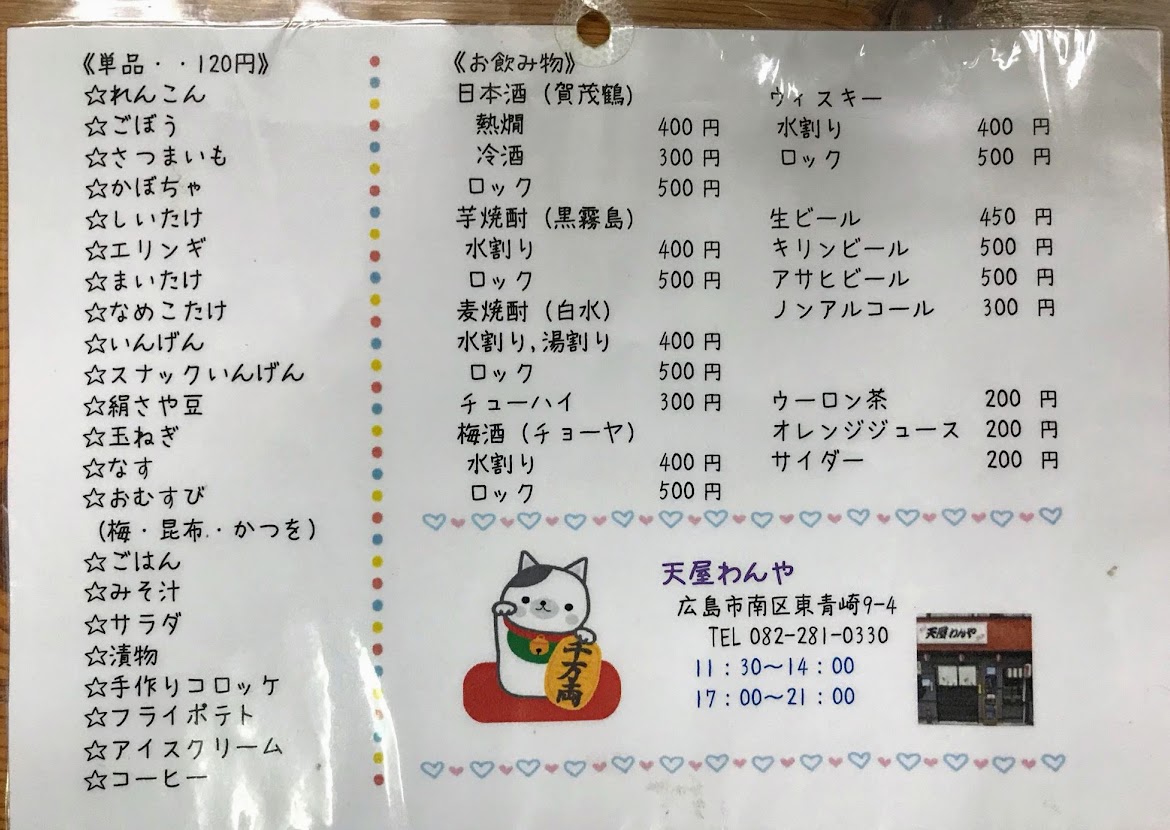 《単品・・120円》
☆れんこん
☆ごぼう
☆さつまいも
☆かぼちゃ
☆しいたけ
☆エリンギ
☆まいたけ
☆なめこたけ
☆いんげん
☆スナックいんげん
☆絹さや豆
☆玉ねぎ
☆なす
☆おむすび
(梅・昆布・かつを)
☆ごはん
☆みそ汁
☆サラダ
☆漬物
☆手作りコロッケ
☆フライポテト
☆アイスクリーム
☆コーヒー
《お飲み物》
日本酒(賀茂鶴)
熱燗 400円
冷酒 300円
ロック 500円
芋焼酎(黒霧島)
水割り 400円
ロック 500円
麦焼酎(白水)
水割り,湯割り 400円
ロック 500円
チューハイ 300円
梅酒(チョーヤ)
水割り 400円
ロック 500円
ウィスキー
水割り 400円
ロック 500円
生ビール 450円
キリンビール 500円
アサヒビール 500円
ノンアルコール 300円
ウーロン茶 200円
オレンジジュース 200円
サイダー 200円
千万両
天屋わんや
広島市南区東青崎9-4
TEL 082-281-0330
11:30～14:00
17:00～21:00
天屋わんや